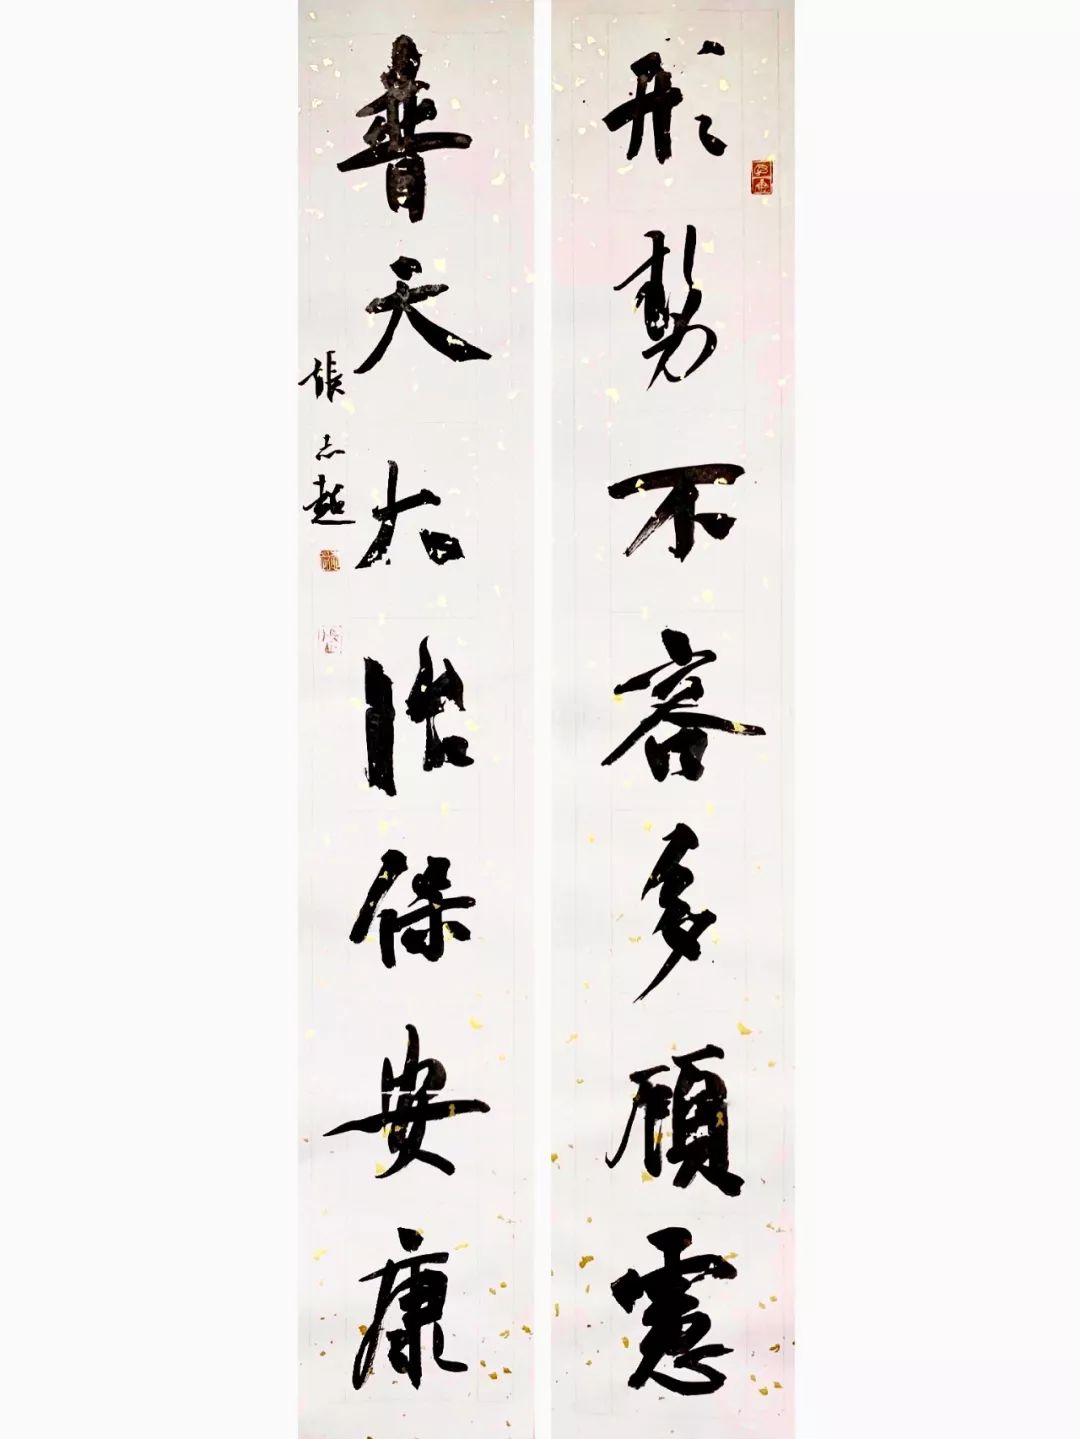 形勢不容多顧慮
普天大治保安康
張志超